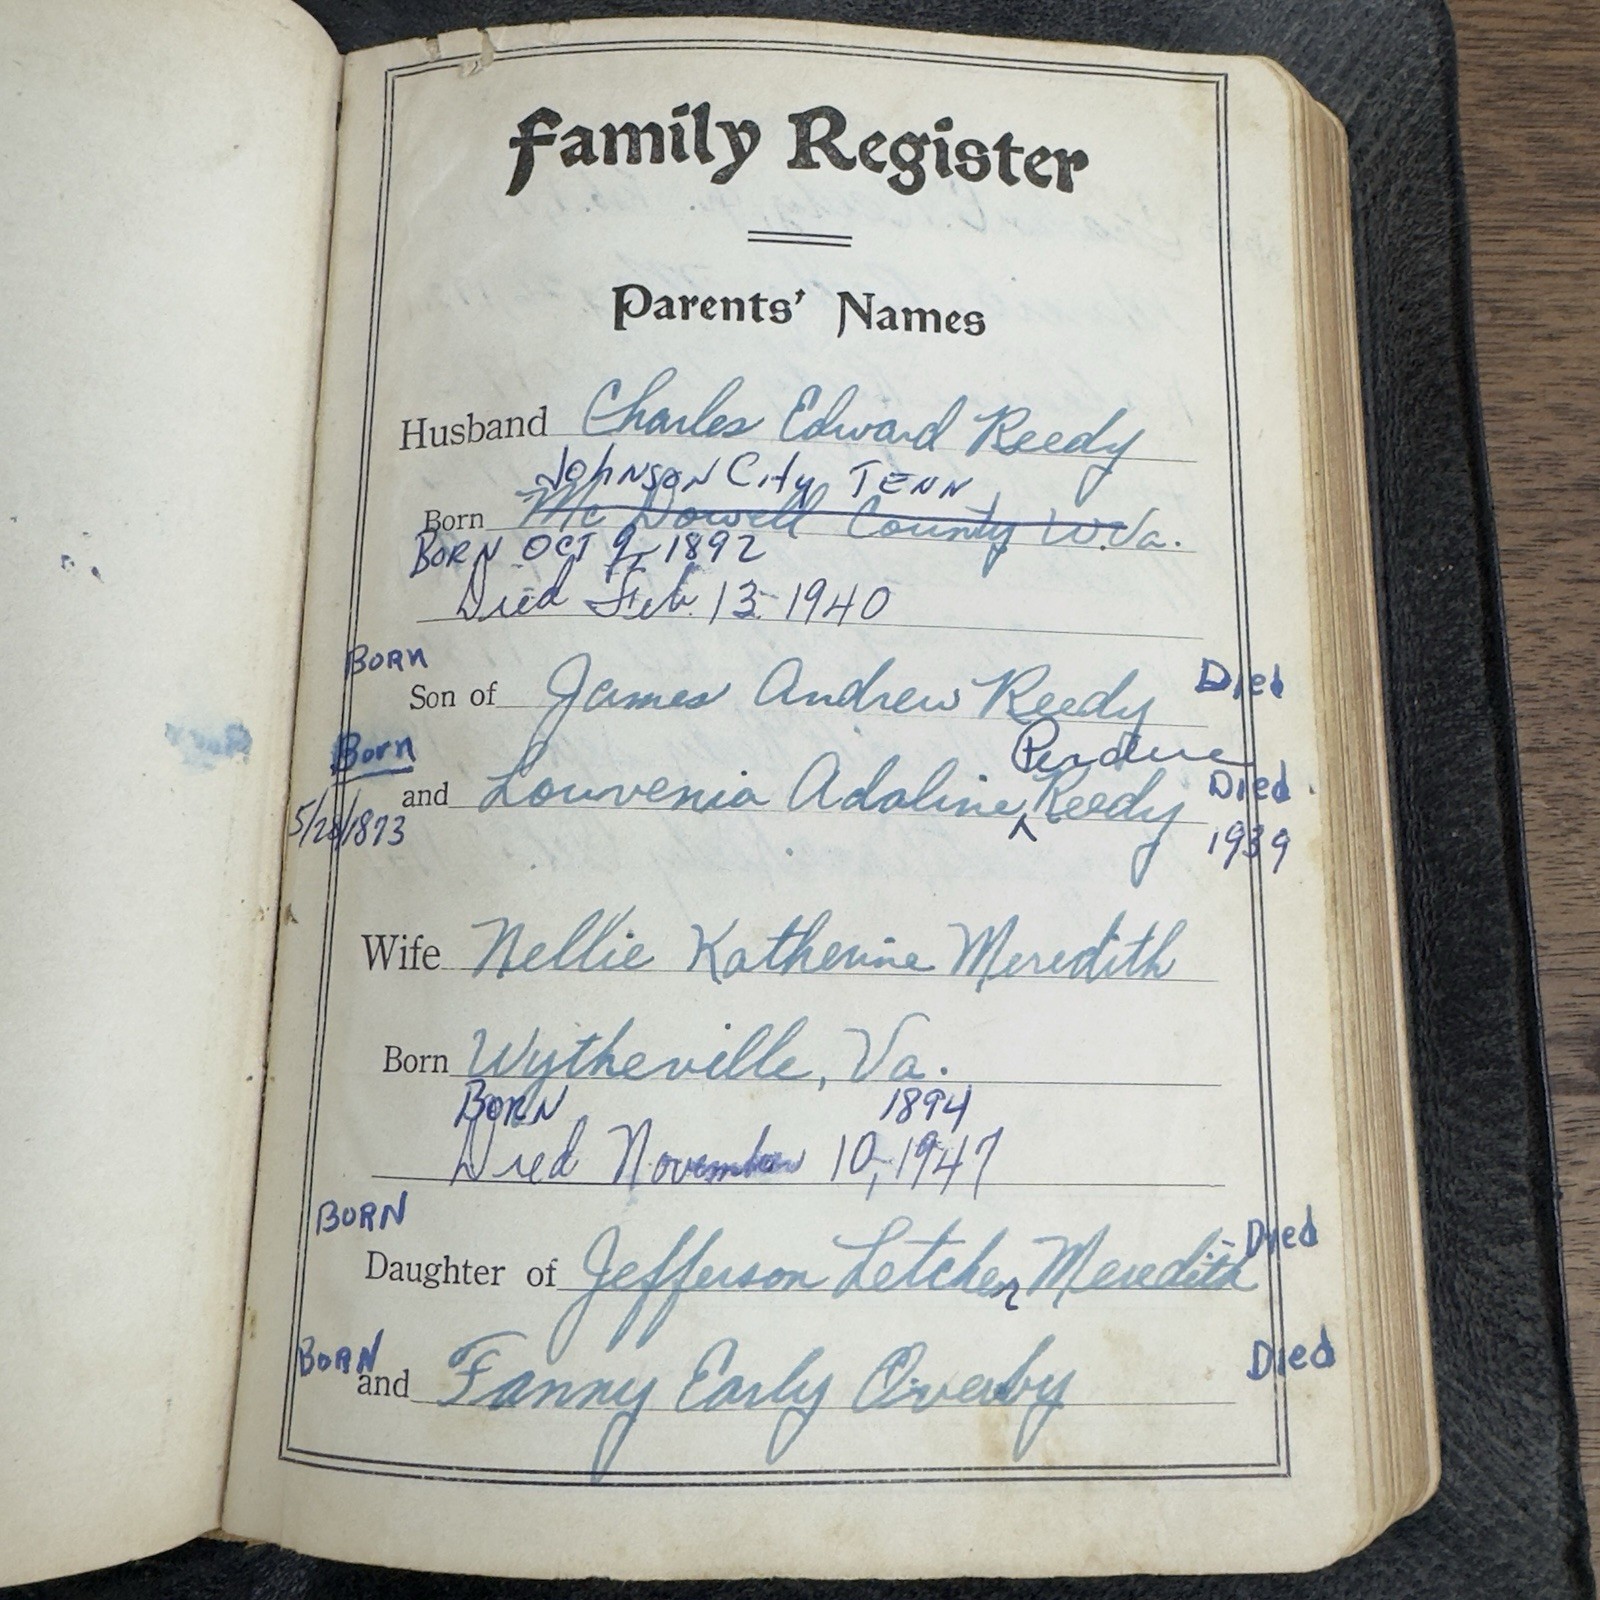 Family Register
Parents' Names
Husband Charles Edward Reedy
Johnson City TENN
Born Mc Dowell County W.Va.
BORN OCT 9, 1892
Died Feb. 13 1940
BORN
Son of James Andrew Reedy Died
Born Perdue
and Louvenia Adaline ^ Reedy Died
5/28/1873 1939
Wife Nellie Katherine Meredith
Born Wytheville, Va.
BORN 1894
Died November 10, 1947
BORN Died
Daughter of Jefferson Letcher Meredith
BORN Died
and Fanny Early Overby